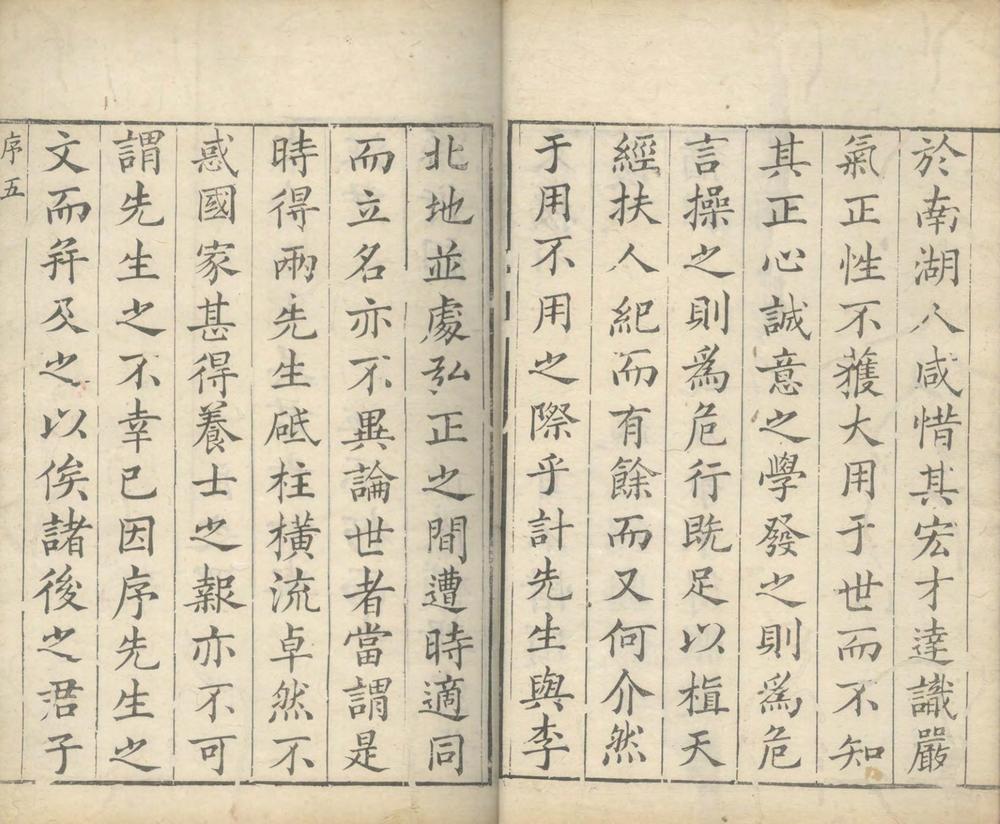 於南湖人咸惜其宏才達識嚴
氣正性不獲大用于世而不知
其正心誠意之學發之則爲危
言操之則爲危行既足以植天
經扶人紀而有餘而又何介然
于用不用之際乎計先生與李
北地並處弘正之間遭時適同
而立名亦不異論世者當謂是
時得兩先生砥柱橫流卓然不
惑國家甚得養士之報亦不可
謂先生之不幸已因序先生之
文而并及之以俟諸後之君子
序五